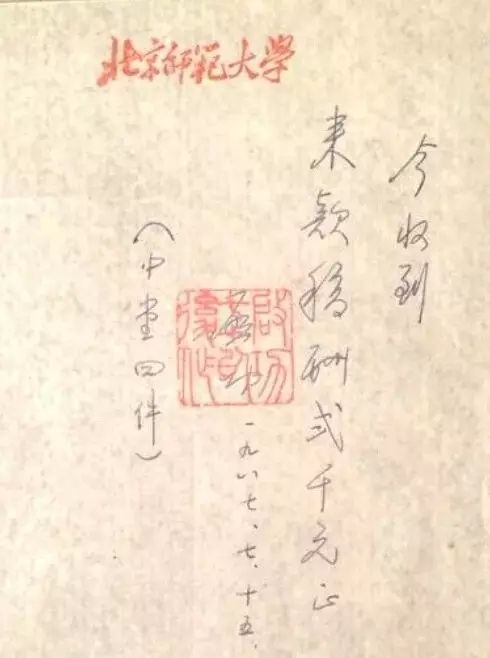 北京师範大学
今收到
来款稿酬弍千元正
啓功
一九八七、七、十五.
（中堂四件）